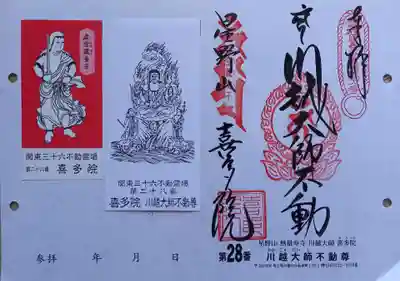 関東三十六不動霊場
第二十八番 喜多院
関東三十六不動霊場
第二十八番
喜多院 川越大師不動尊
参拝 年 月 日
奉拝
川越大師不動
星野山
喜多院
第28番
星野山 無量寿寺 川越大師 喜多院
川越大師不動尊